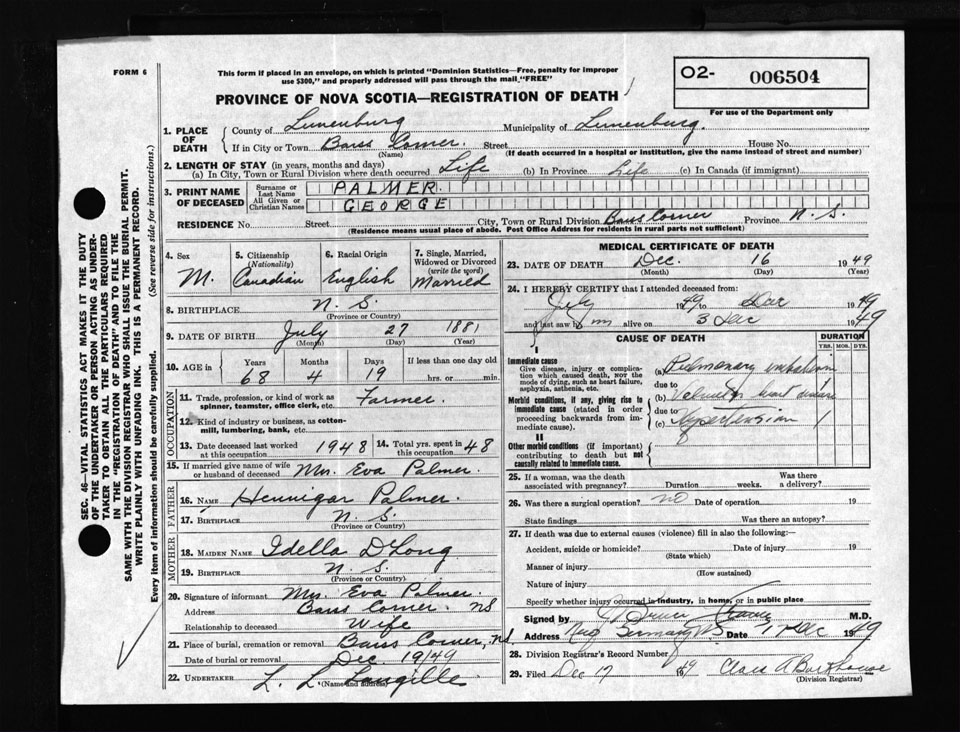 FORM 6
This form if placed in an envelope, on which is printed "Dominion Statistics—Free, penalty for improper use $300," and properly addressed will pass through the mail "FREE"
O2- 006504
For use of the Department only
PROVINCE OF NOVA SCOTIA—REGISTRATION OF DEATH
1. PLACE OF DEATH
County of Lunenburg Municipality of Lunenburg.
If in City or Town Barss Corner. Street House No.
(Name) (If death occurred in a hospital or institution, give the name instead of street and number)
2. LENGTH OF STAY (in years, months and days)
(a) In City, Town or Rural Division where death occurred Life (b) In Province Life (c) In Canada (if immigrant)
3. PRINT NAME OF DECEASED
Surname or Last Name PALMER.
All Given or Christian Names GEORGE
RESIDENCE No. Street City, Town or Rural Division Barss Corner Province N.S.
(Residence means usual place of abode. Post Office Address for residents in rural parts not sufficient)
4. Sex M.
5. Citizenship (Nationality) Canadian
6. Racial Origin English
7. Single, Married, Widowed or Divorced (write the word) Married
8. BIRTHPLACE N.S.
(Province or Country)
9. DATE OF BIRTH July 27 1881
(Month) (Day) (Year)
10. AGE in Years Months Days If less than one day old
68 4 19 hrs. or min.
OCCUPATION
11. Trade, profession, or kind of work as spinner, teamster, office clerk, etc. Farmer.
12. Kind of industry or business, as cotton-mill, lumbering, bank, etc.
13. Date deceased last worked at this occupation 1948 14. Total yrs. spent in this occupation 48
15. If married give name of wife or husband of deceased Mrs. Eva Palmer.
FATHER
16. NAME Hennigar Palmer.
17. BIRTHPLACE N.S.
(Province or Country)
MOTHER
18. MAIDEN NAME Idella DeLong
19. BIRTHPLACE N.S.
(Province or Country)
20. Signature of informant Mrs. Eva Palmer.
Address Barss Corner. NS
Relationship to deceased Wife
21. Place of burial, cremation or removal Barss Corner, NS
Date of burial or removal Dec. 19/49
22. UNDERTAKER L. L. Langille
(Name and address)
MEDICAL CERTIFICATE OF DEATH
23. DATE OF DEATH Dec. 16 1949
(Month) (Day) (Year)
24. I HEREBY CERTIFY that I attended deceased from:
July 1949 to Dec 1949
and last saw him alive on 3 Dec 1949
CAUSE OF DEATH DURATION
YRS. MOS. DYS.
I
Immediate cause
Give disease, injury or complication which caused death, not the mode of dying, such as heart failure, asphyxia, asthenia, etc.
(a) Pulmonary
due to
Morbid conditions, if any, giving rise to immediate cause (stated in order proceeding backwards from immediate cause).
(b) heart disease
due to
(c) Hypertension
II
Other morbid conditions (if important) contributing to death but not causally related to immediate cause.
25. If a woman, was the death associated with pregnancy? Duration weeks. Was there a delivery?
26. Was there a surgical operation? no Date of operation 19
State findings Was there an autopsy?
27. If death was due to external causes (violence) fill in also the following:—
Accident, suicide or homicide? Date of injury 19
(State which)
Manner of injury
(How sustained)
Nature of injury
Specify whether injury occurred in industry, in home, or in public place
Signed by M.D.
Address New Germany NS Date 17 Dec 1949
28. Division Registrar's Record Number
29. Filed Dec 17 1949 Clara A Barkhouse
(Division Registrar)
SEC. 46—VITAL STATISTICS ACT MAKES IT THE DUTY OF THE UNDERTAKER OR PERSON ACTING AS UNDERTAKER TO OBTAIN ALL THE PARTICULARS REQUIRED IN THE "REGISTRATION OF DEATH" AND TO FILE THE SAME WITH THE DIVISION REGISTRAR WHO SHALL ISSUE THE BURIAL PERMIT.
WRITE PLAINLY WITH UNFADING INK. THIS IS A PERMANENT RECORD.
Every item of information should be carefully supplied. (See reverse side for instructions.)